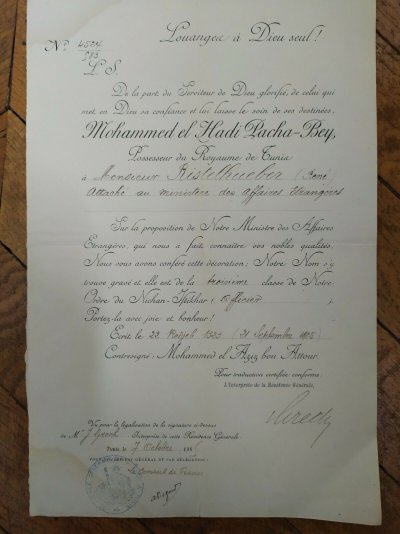 Louanges à Dieu seul!
N°. 4524
L. S.
De la part du Serviteur de Dieu glorifié, de celui qui
met en Dieu sa confiance et lui laisse le soin de ses destinées,
Mohammed el Hadi Pacha-Bey,
Possesseur du Royaume de Tunis
à Monsieur Ristelhueber (René
Attaché au ministère des affaires étrangères
Sur la proposition de Notre Ministre des Affaires
Etrangères, qui nous a fait connaître vos nobles qualités,
Nous vous avons conféré cette décoration; Notre Nom s'y
trouve gravé et elle est de la troisième classe de Notre
Ordre du Nichan-Iftikhar (Officier).
Portez-la avec joie et bonheur!
Ecrit le 23 Redjeb 1323 (21 Septembre 1905)
Contresigné: Mohammed el Aziz bou Attour.
Pour traduction certifiée conforme:
L'Interprète de la Résidence Générale,
Vu pour la légalisation de la signature ci-dessus
de Mr Interprète de cette Résidence Générale.
Tunis, le 7 Octobre 190
POUR LE RÉSIDENT GÉNÉRAL ET PAR DÉLÉGATION:
Le Consul de France